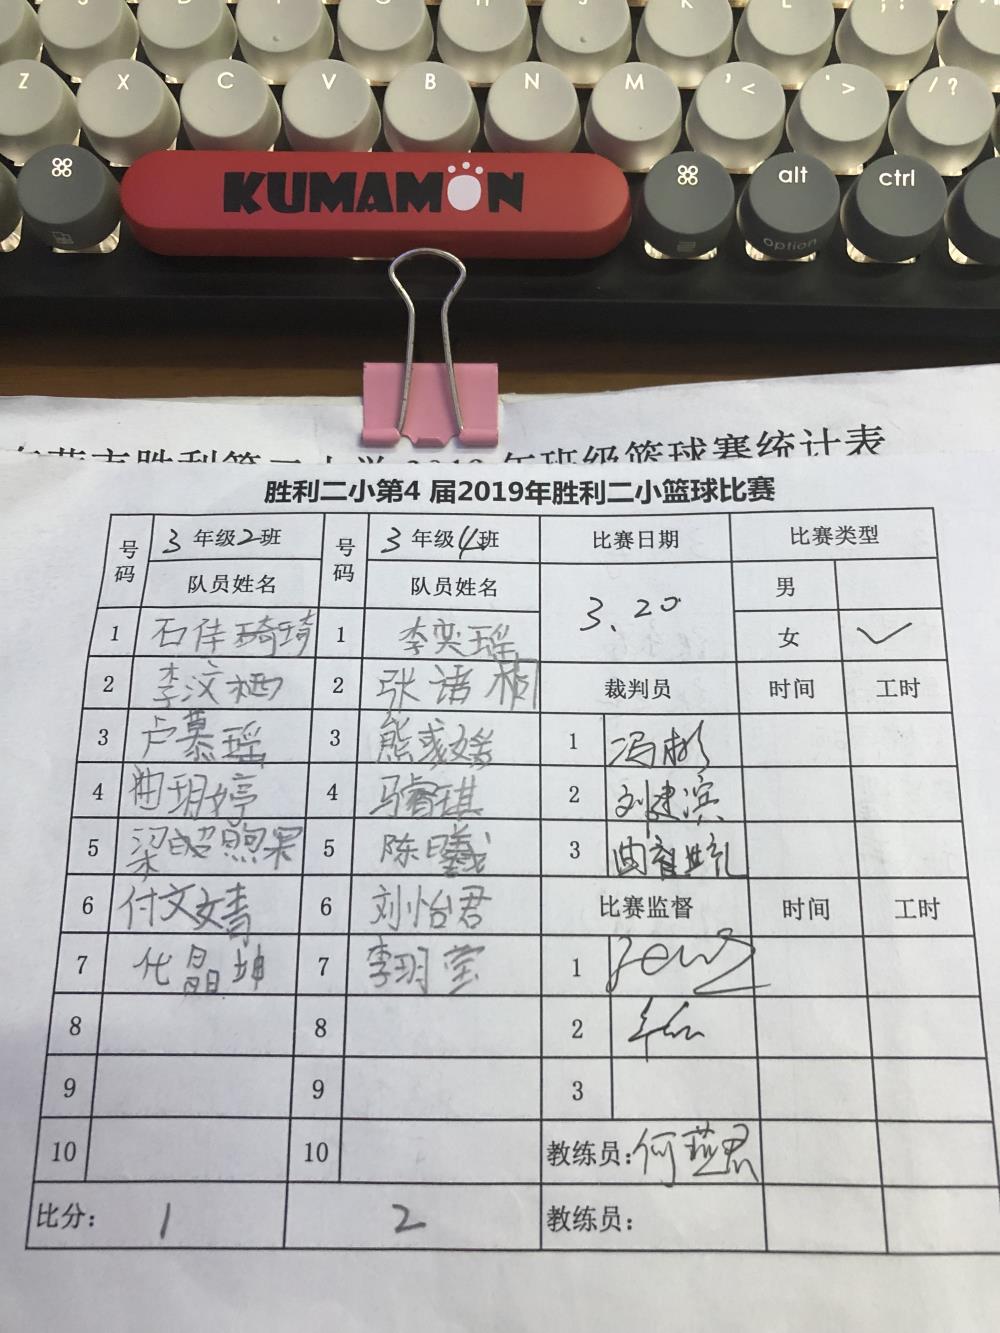 Z X C V B N M ' < " > / ?
⌘ KUMAMON ⌘ alt option ctrl
2019年班级篮球赛统计表
胜利二小第4 届2019年胜利二小篮球比赛
号码 3 年级2班 号码 3 年级4班 比赛日期 比赛类型
队员姓名 队员姓名 3.20 男
1 石佳琦琦 1 李奕瑶 女 ✓
2 李汶栖 2 张诸桐 裁判员 时间 工时
3 卢慕瑶 3 熊彧媛 1 冯彬
4 曲玥婷 4 马睿琪 2 刘建滨
5 梁 照果 5 陈曦 3 曲
6 付文婧 6 刘怡君 比赛监督 时间 工时
7 代晶坤 7 李玥莹 1
8 8 2
9 9 3
10 10 教练员:何燕君
比分: 1 2 教练员: